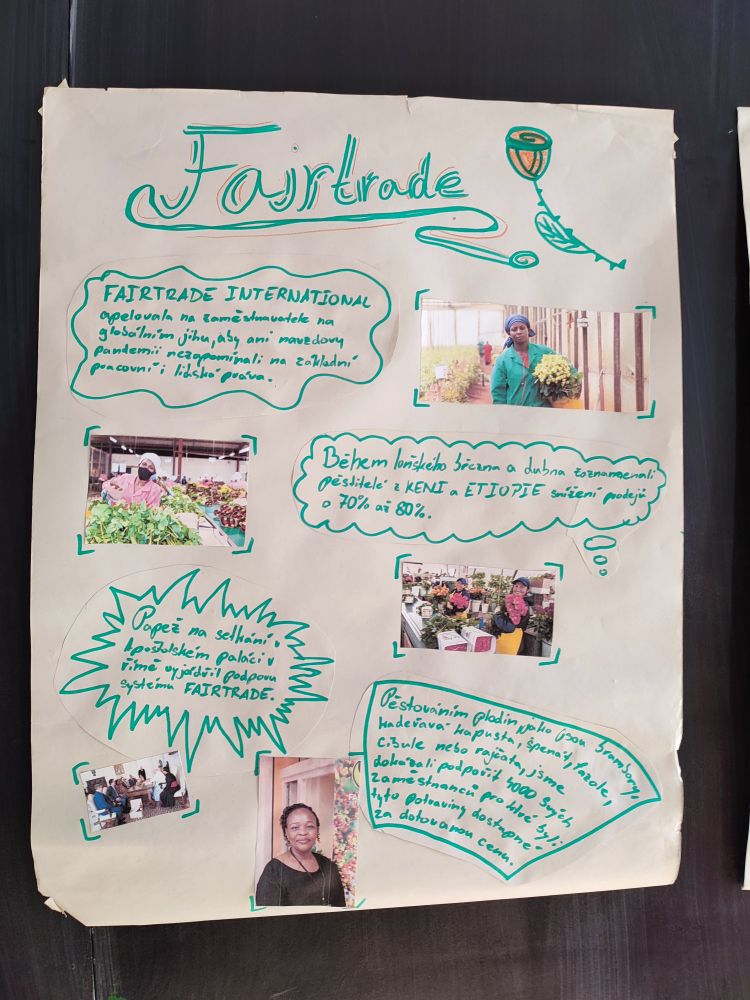 Fairtrade
FAIRTRADE INTERNATIONAL
apelovala na zaměstnavatele na
globálním jihu, aby ani navzdory
pandemii nezapomínali na základní
pracovní i lidská práva.
Během loňského března a dubna zaznamenali
pěstitelé z KENI a ETIOPIE snížení prodejů
o 70% až 80%.
Papež na setkání v
Apoštolském paláci v
římě vyjádřil podporu
systému FAIRTRADE.
Pěstováním plodin, jako jsou brambory,
kadeřavá kapusta, špenát, fazole,
cibule nebo rajčata, jsme
dokázali podpořit 4000 svých
zaměstnanců pro které byli
tyto potraviny dostupné
za dotovanou cenu.